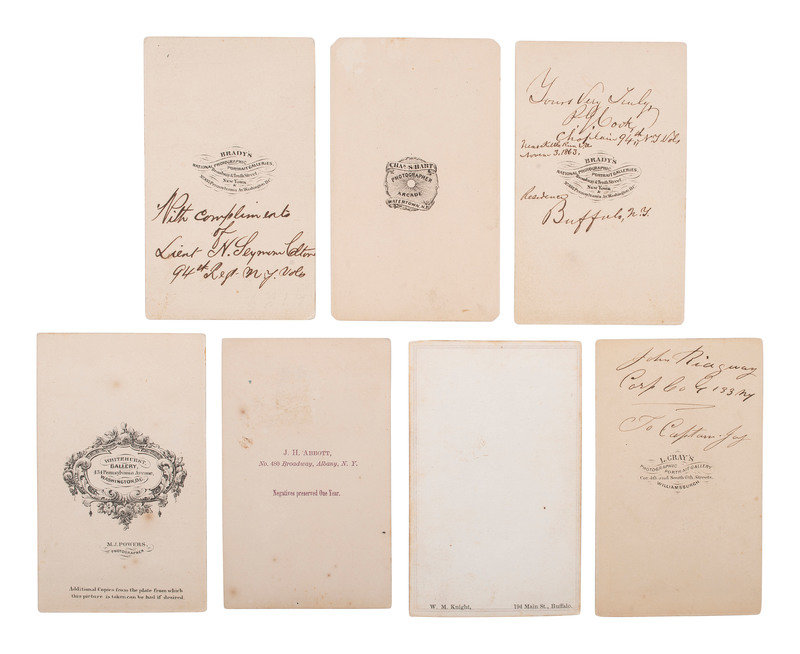 BRADY'S
NATIONAL PHOTOGRAPHIC
PORTRAIT GALLERIES,
Broadway & Tenth Street
NEW YORK
&
No 352 Pennsylvania Av. Washington D.C.
With compliments
of
Lieut N. Seymour
94th Regt N.Y. Vols
CHAS S. HART
PHOTOGRAPHER
ARCADE
WATERTOWN, N.Y.
Yours Very Truly
P. G. Cook
Chaplain 94th N.Y. Vols
Novem 3. 1863.
BRADY'S
NATIONAL PHOTOGRAPHIC
PORTRAIT GALLERIES,
Broadway & Tenth Street
NEW YORK
&
No 352 Pennsylvania Av. Washington D.C.
Residence
Buffalo, N.Y.
WHITEHURST
GALLERY,
434 Pennsylvania Avenue,
WASHINGTON, D.C.
M. J. POWERS,
PHOTOGRAPHER
Additional Copies from the plate from which
this picture is taken can be had if desired.
J. H. ABBOTT,
No. 480 Broadway, Albany, N. Y.
Negatives preserved One Year.
W. M. Knight, 194 Main St., Buffalo.
John Ridgway
Corp Co G 193 NY
To Captain Joy
L. GRAY'S
PHOTOGRAPHIC
PORTRAIT GALLERY
Cor. 4th and South 6th Streets.
WILLIAMSBURGH.